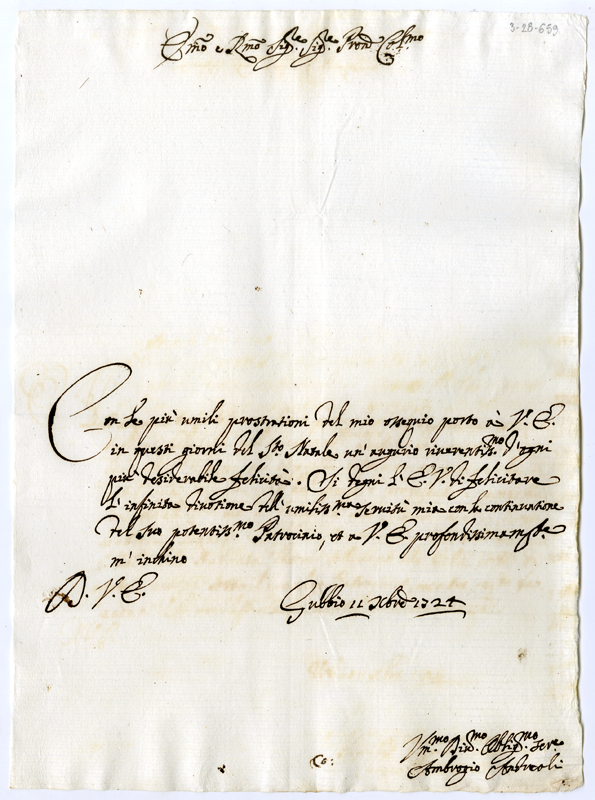 3-28-659
Emo e Rmo Sigre Sigre Pron Colmo
Con le più umili prostrationi del mio ossequio porto à V. E.
in questi giorni del Sto Natale un' augurio riverentissmo d'ogni
più desiderabile felicità. Si degni l' E. V. di felicitare
l' infinita divotione dell' umilissma servitù mia con la continuatione
del suo potentissmo Patrocinio, et a V. E. profondissimamte
m' inchino
D. V. E.
Gubbio 11 Xbre 1724
Vmo Divmo Obligmo Sere
Ambrogio Andreoli
Co: